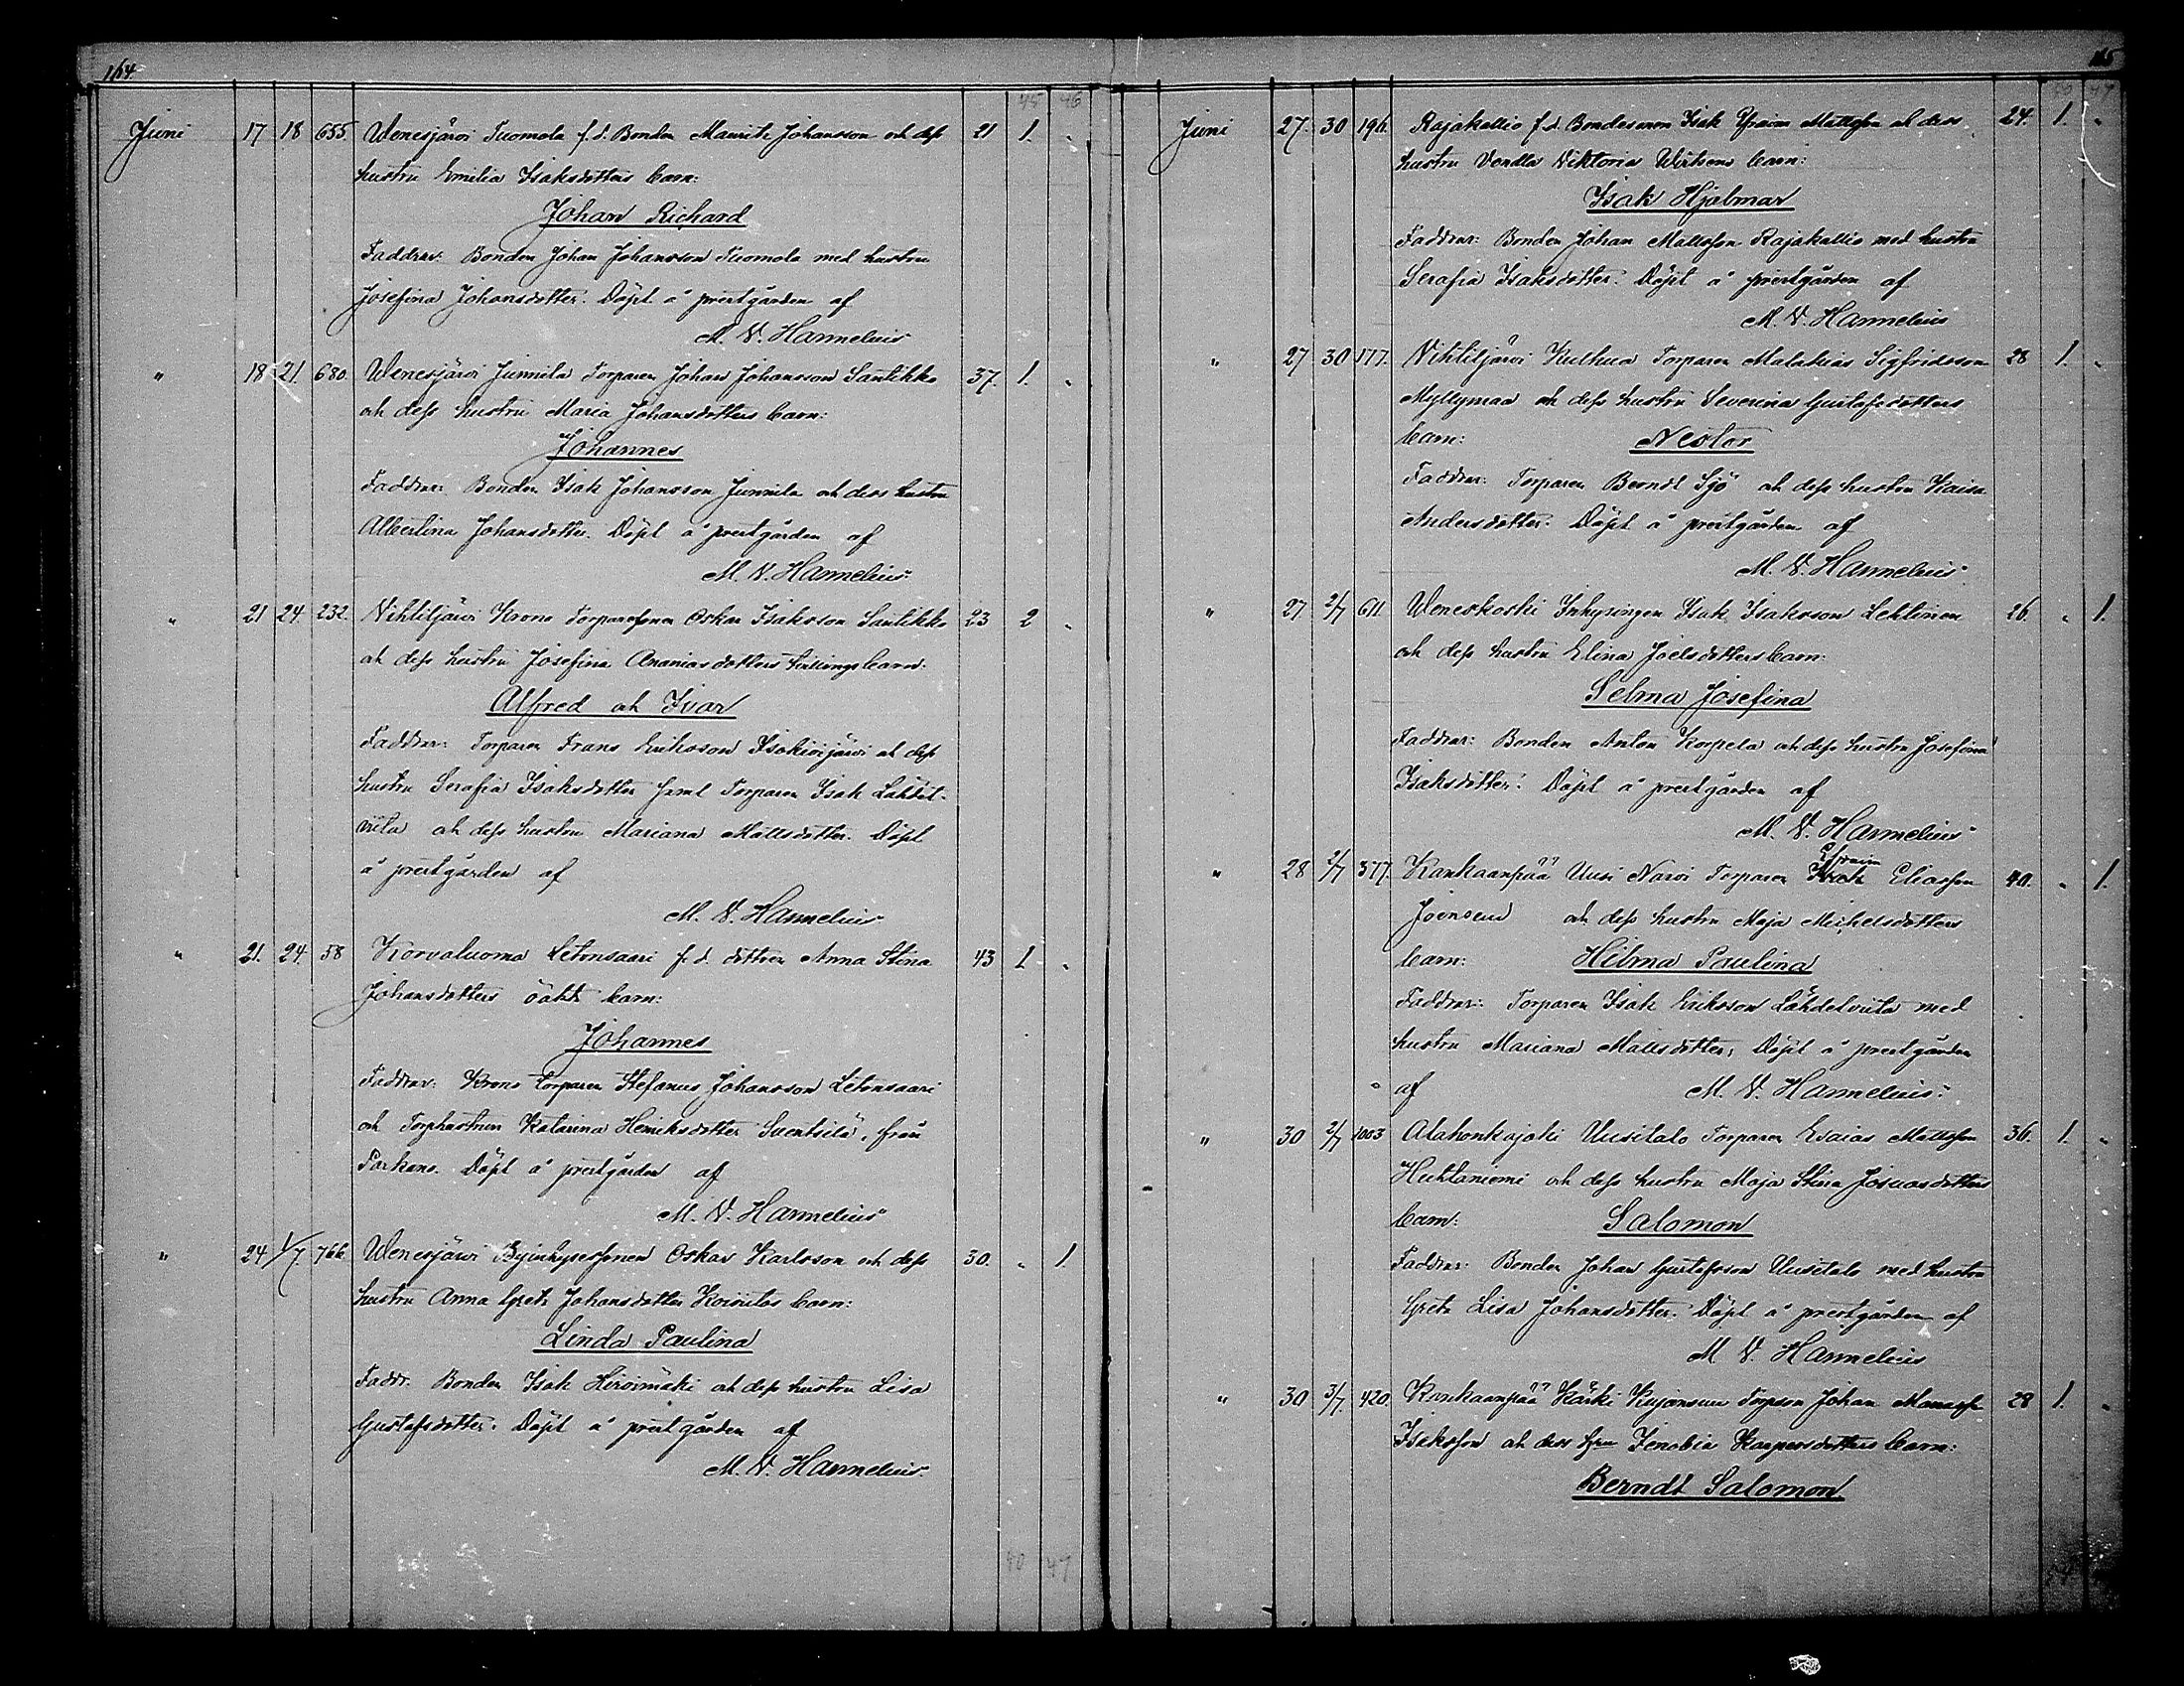 164
45 46
Juni 17 18 655. Wenesjärvi Tuomola f. d. Bonden Maurits Johansson och dess 21 1. „
hustru Emilia Isaksdotters barn:
Johan Richard
Faddrar: Bonden Johan Johansson Tuomola med hustru
Josefina Johansdotter. Döpt å prestgården af
M. V. Hannelius
„ 18 21. 680. Wenesjärvi Junnila Torparen Johan Johansson Santikko 37. 1. „
och dess hustru Maria Johansdotters barn:
Johannes
Faddrar: Bonden Isak Johansson Junnila och dess hustru
Albertina Johansdotter. Döpt å prestgården af
M. V. Hannelius.
„ 21 24. 232. Nihtiljärvi Krono Torparesonen Oskar Isaksson Santikko 23 2 „
och dess hustru Josefina Ananiasdotters tvillingebarn.
Alfred och Ivar
Faddrar: Torparen Frans Eriksson Isokivijärvi och dess
hustru Serafia Isaksdotter samt Torparen Isak Lähdet-
viita och dess hustru Mariana Mattsdotter. Döpt
å prestgården af
M. V. Hannelius
„ 21. 24. 58 Korvaluoma Letonsaari f. d. dottren Anna Stina 43 1 „
Johansdotters oäkta barn:
Johannes
Faddrar: Krono torparen Stefanus Johansson Letonsaari
och Torphustrun Katarina Henriksdotter från
Parkano. Döpt å prestgården af
M. V. Hannelius
„ 24 1/7. 766. Wenesjärvi Byinhysessonen Oskar Karlsson och dess 30. „ 1.
hustru Anna Greta Johansdotter Koivitos barn:
Linda Paulina
Faddr. Bonden Isak Hirvimäki och dess hustru Lisa
Gustafsdotter. Döpt å prestgården af
M. V. Hannelius.
47
Juni 27. 30 196. Rajakallio f. d. Bondesonen Isak Efraim Mattsson och dess 24. 1. „
hustru Vendla Viktoria barn:
Isak Hjalmar
Faddrar: Bonden Johan Mattsson Rajakallio med hustru
Serafia Isaksdotter. Döpt å prestgården af
M. V. Hannelius
„ 27 30 177. Nihtiljärvi Kulhua Torparen Malakias Sigfridsson 28 1. „
Myllymaa och dess hustru Severina Gustafsdotters
barn: Nestor
Faddrar: Torparen Berndt Sjö och dess hustru Kaisa
Andersdotter. Döpt å prestgården af
M. V. Hannelius
„ 27 2/7 611. Weneskoski Inhysingen Isak Isaksson Lehtinen 26. „ 1.
och dess hustru Elina Joelsdotters barn:
Selma Josefina
Faddrar: Bonden Anton Korpela och dess hustru Josefina
Isaksdotter. Döpt å prestgården af
M. V. Hannelius
Efraim
„ 28 2/7 377. Kankaanpää Uusi Narvi Torparen Eliasson 40. „ 1.
Joensuu och dess hustru Maja Michelsdotters
barn: Hilma Paulina
Faddrar: Torparen Isak Eriksson Lähdetviita med
hustru Mariana Mattsdotter. Döpt å prestgården
af M. V. Hannelius.
„ 30 2/7 1003 Alahonkajoki Uusitalo Torparen Esaias Mattsson 36. 1. „
Huhtaniemi och dess hustru Maja Stina Josuasdotters
barn: Salomon
Faddrar: Bonden Johan Gustafsson Uusitalo med hustru
Greta Lisa Johansdotter. Döpt å prestgården af
M V. Hannelius
„ 30 3/7. 420. Kankaanpää Käiki Kujansuu Torpson Johan 28 1. „
Isaksson och dess hru Zenobia Kaspersdotters barn:
Berndt Salomon
40 47